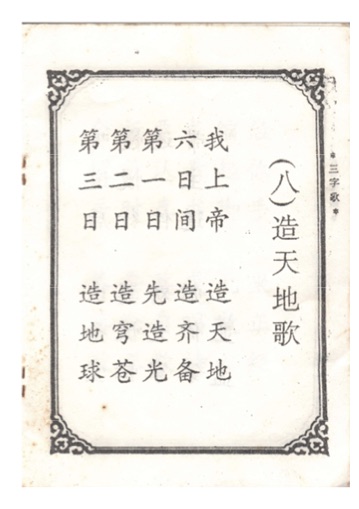 *三字歌*
(八)造天地歌
我上帝 造天地
六日间 造齐备
第一日 先造光
第二日 造穹苍
第三日 造地球